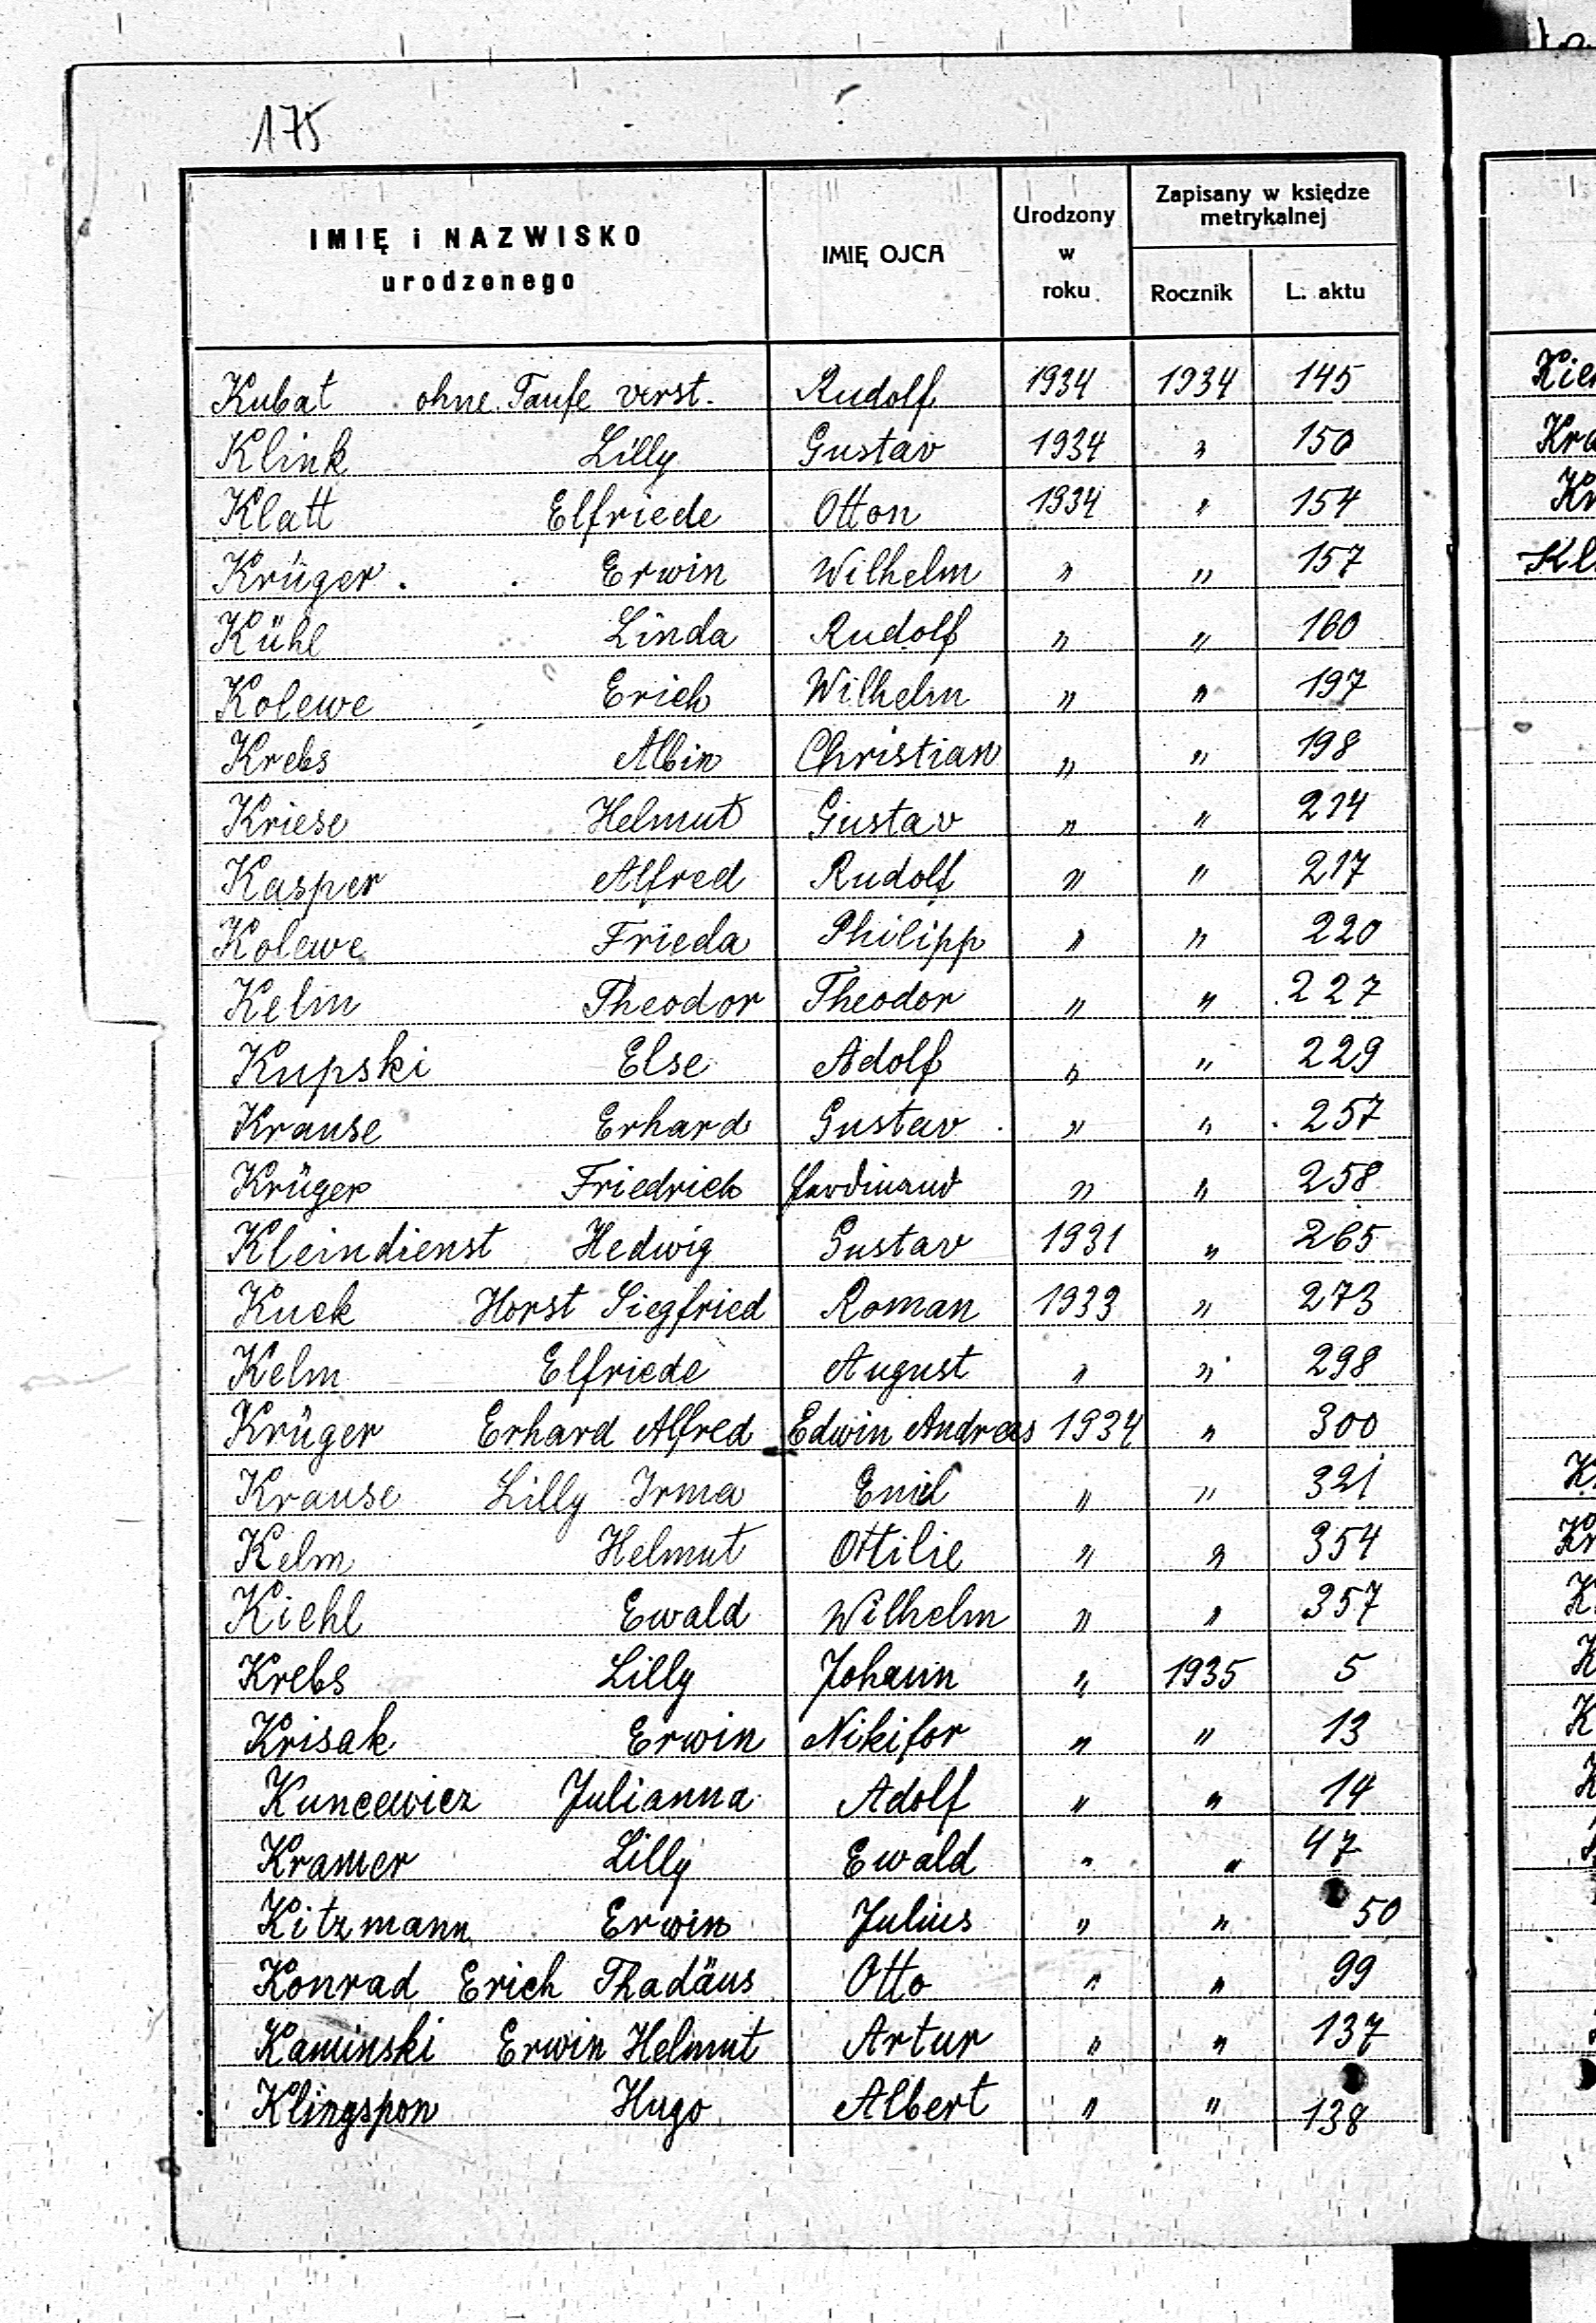 175
IMIĘ i NAZWISKO urodzonego IMIĘ OJCA Urodzony w roku Zapisany w księdze metrykalnej Rocznik L. aktu
Kubat ohne Taufe verst. Rudolf 1934 1934 145
Klink Lilly Gustav 1934 " 150
Klatt Elfriede Otton 1934 " 154
Krüger Erwin Wilhelm " " 157
Kühl Linda Rudolf " " 160
Kolewe Erich Wilhelm " " 197
Krebs Albin Christian " " 198
Kriese Helmut Gustav " " 214
Kasper Alfred Rudolf " " 217
Kolewe Frieda Philipp " " 220
Kelm Theodor Theodor " " 227
Kupski Else Adolf " " 229
Krause Erhard Gustav " " 257
Krüger Friedrich Ferdinand " " 258
Kleindienst Hedwig Gustav 1931 " 265
Kuck Horst Siegfried Roman 1933 " 273
Kelm Elfriede August " " 298
Krüger Erhard Alfred Edwin Andreas 1934 " 300
Krause Lilly Irma Emil " " 321
Kelm Helmut Ottilie " " 354
Kiehl Ewald Wilhelm " " 357
Krebs Lilly Johann " 1935 5
Krisak Erwin Nikifor " " 13
Kuncewicz Julianna Adolf " " 14
Kramer Lilly Ewald " " 47
Kitzmann Erwin Julius " " 50
Konrad Erich Thadäus Otto " " 99
Kaminski Erwin Helmut Artur " " 137
Klingspon Hugo Albert " " 138